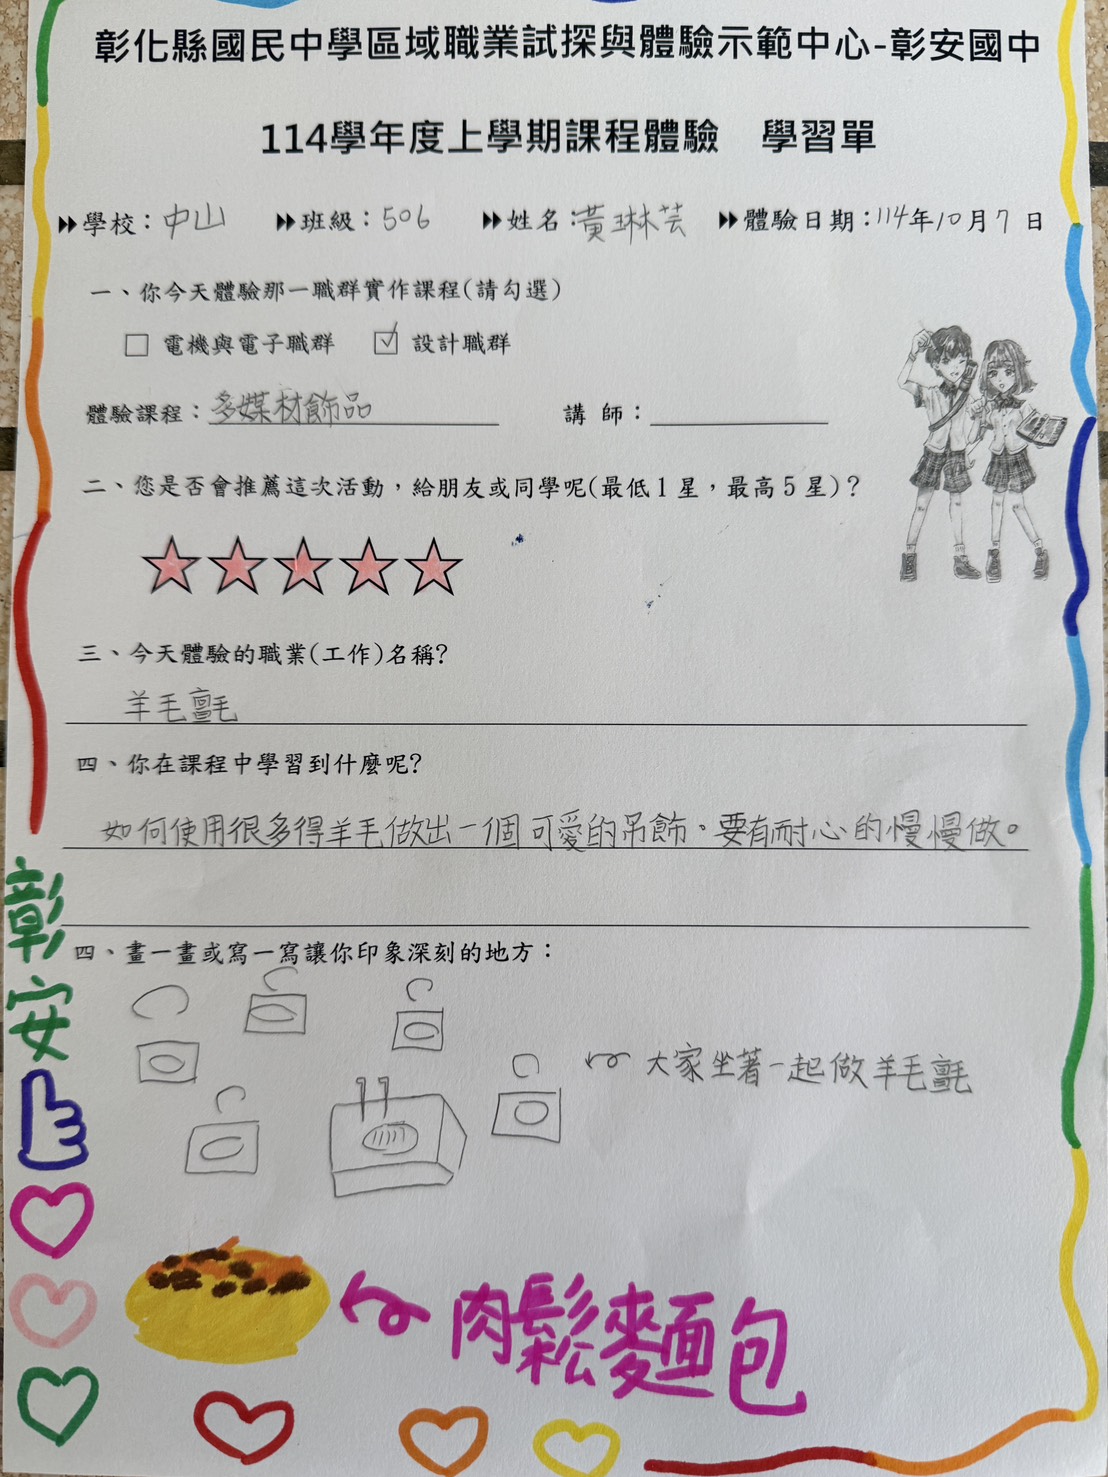 彰化縣國民中學區域職業試探與體驗示範中心-彰安國中
114學年度上學期課程體驗 學習單
學校：中山 班級：506 姓名：黃琳芸 體驗日期：114年10月7日
一、你今天體驗那一職群實作課程(請勾選)
□ 電機與電子職群 ☑ 設計職群
體驗課程：多媒材飾品 講 師：
二、您是否會推薦這次活動，給朋友或同學呢(最低1星，最高5星)？
三、今天體驗的職業(工作)名稱?
羊毛氈
四、你在課程中學習到什麼呢?
如何使用很多得羊毛做出一個可愛的吊飾。要有耐心的慢慢做。
四、畫一畫或寫一寫讓你印象深刻的地方：
大家坐著一起做羊毛氈
彰安
肉鬆麵包